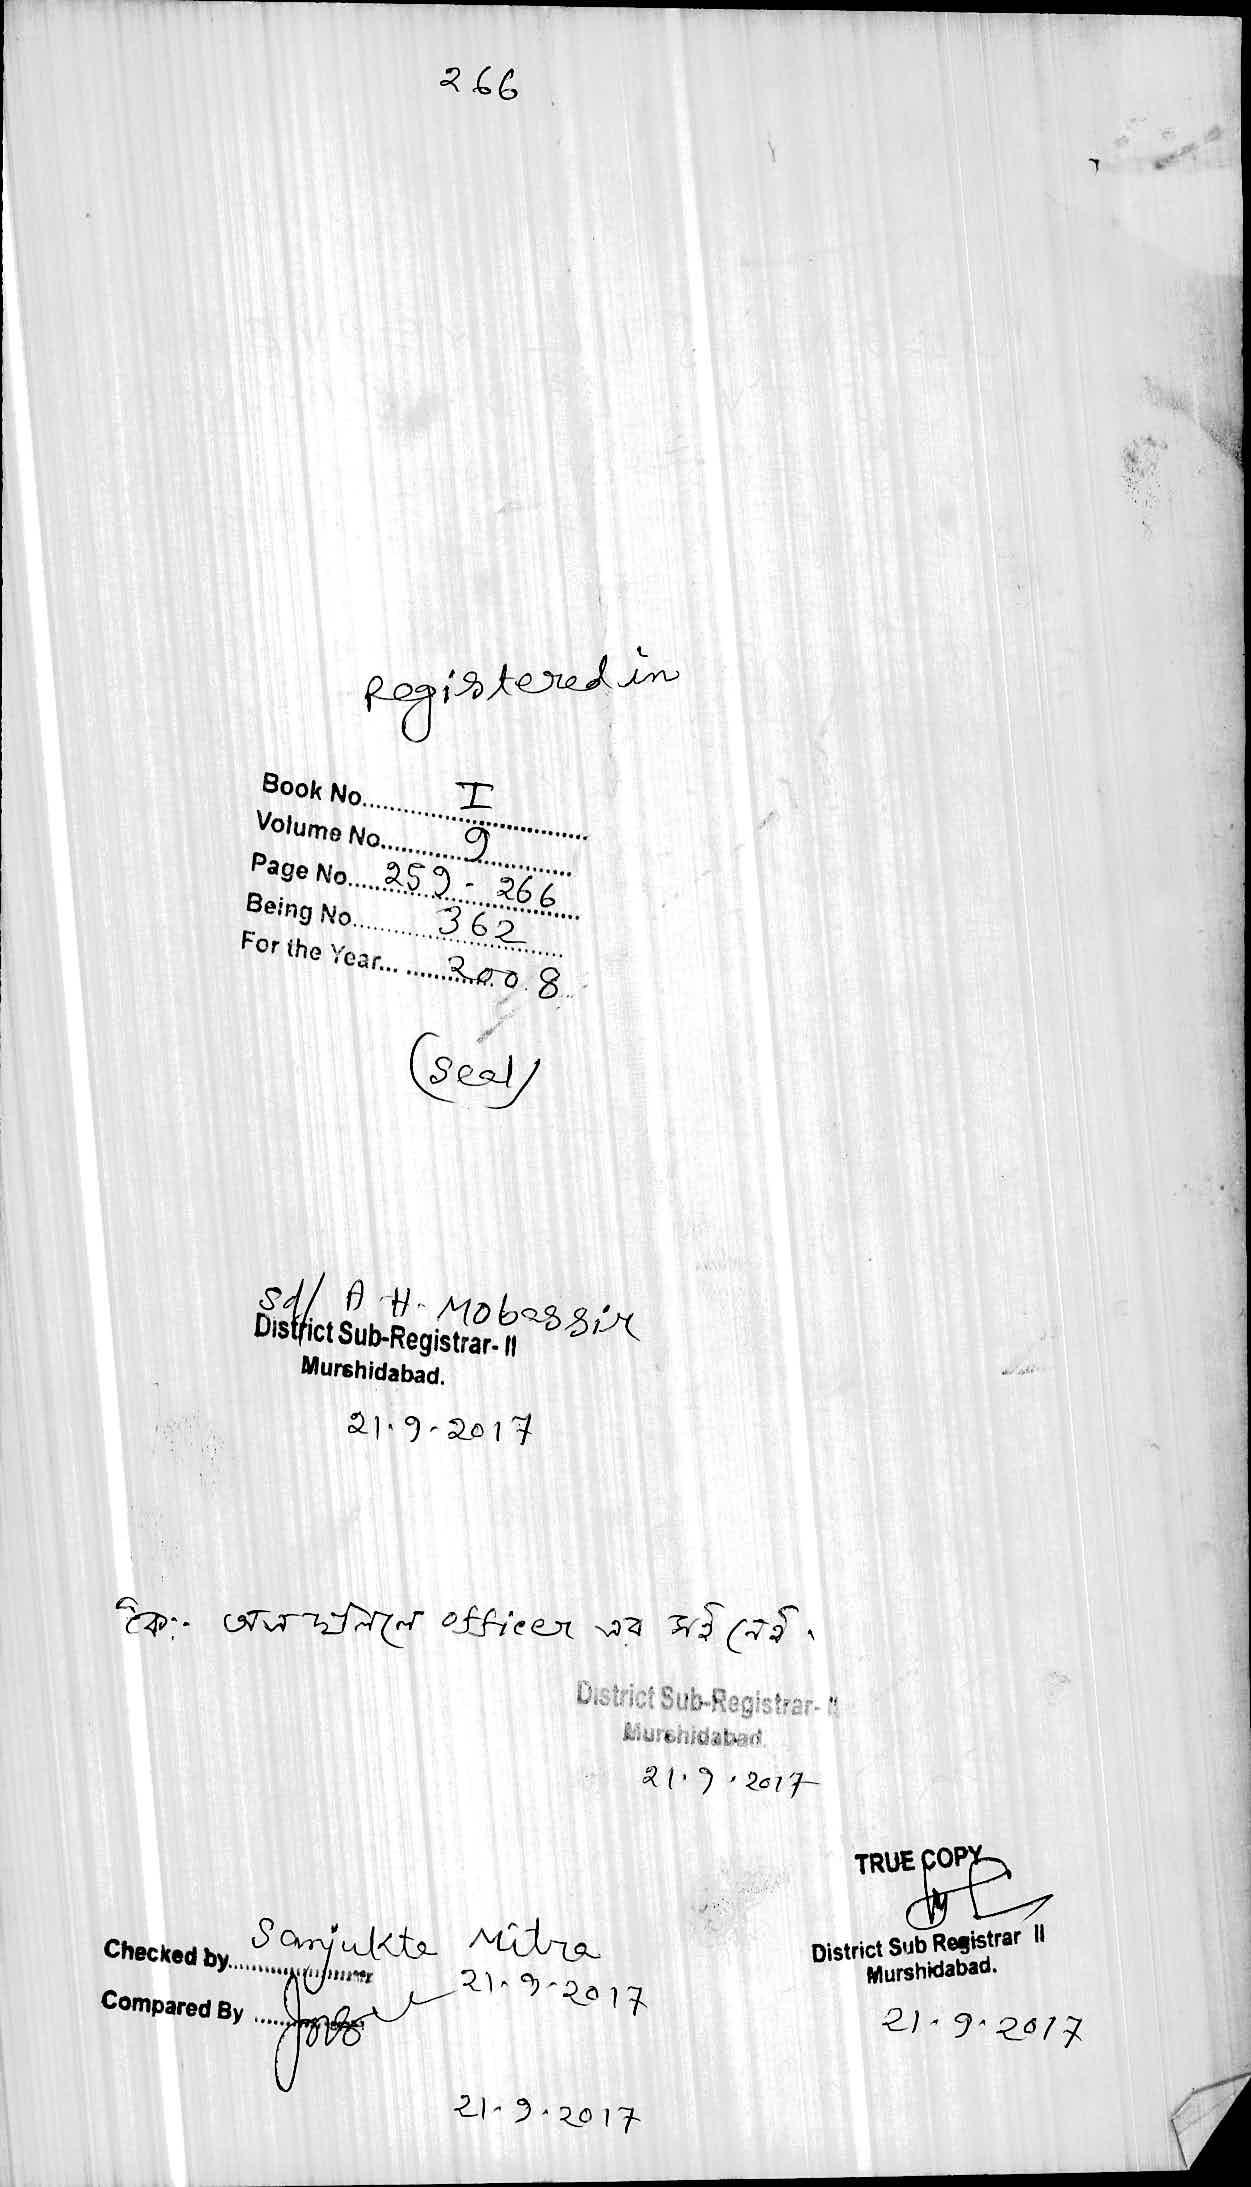 266
Registered in
Book No. I
Volume No. 9
Page No. 259 - 266
Being No. 362
For the Year... 2008
(Seal)
Sd/ A. H. Mobassir
District Sub-Registrar- II
Murshidabad.
21.9.2017
কৈ:- অত্র দলিলে officer এর সই নেই.
District Sub-Registrar- II
Murshidabad
21.9.2017
TRUE COPY
District Sub Registrar II
Murshidabad.
21.9.2017
Checked by Sanjukta Mitra
21.9.2017
Compared By
21.9.2017